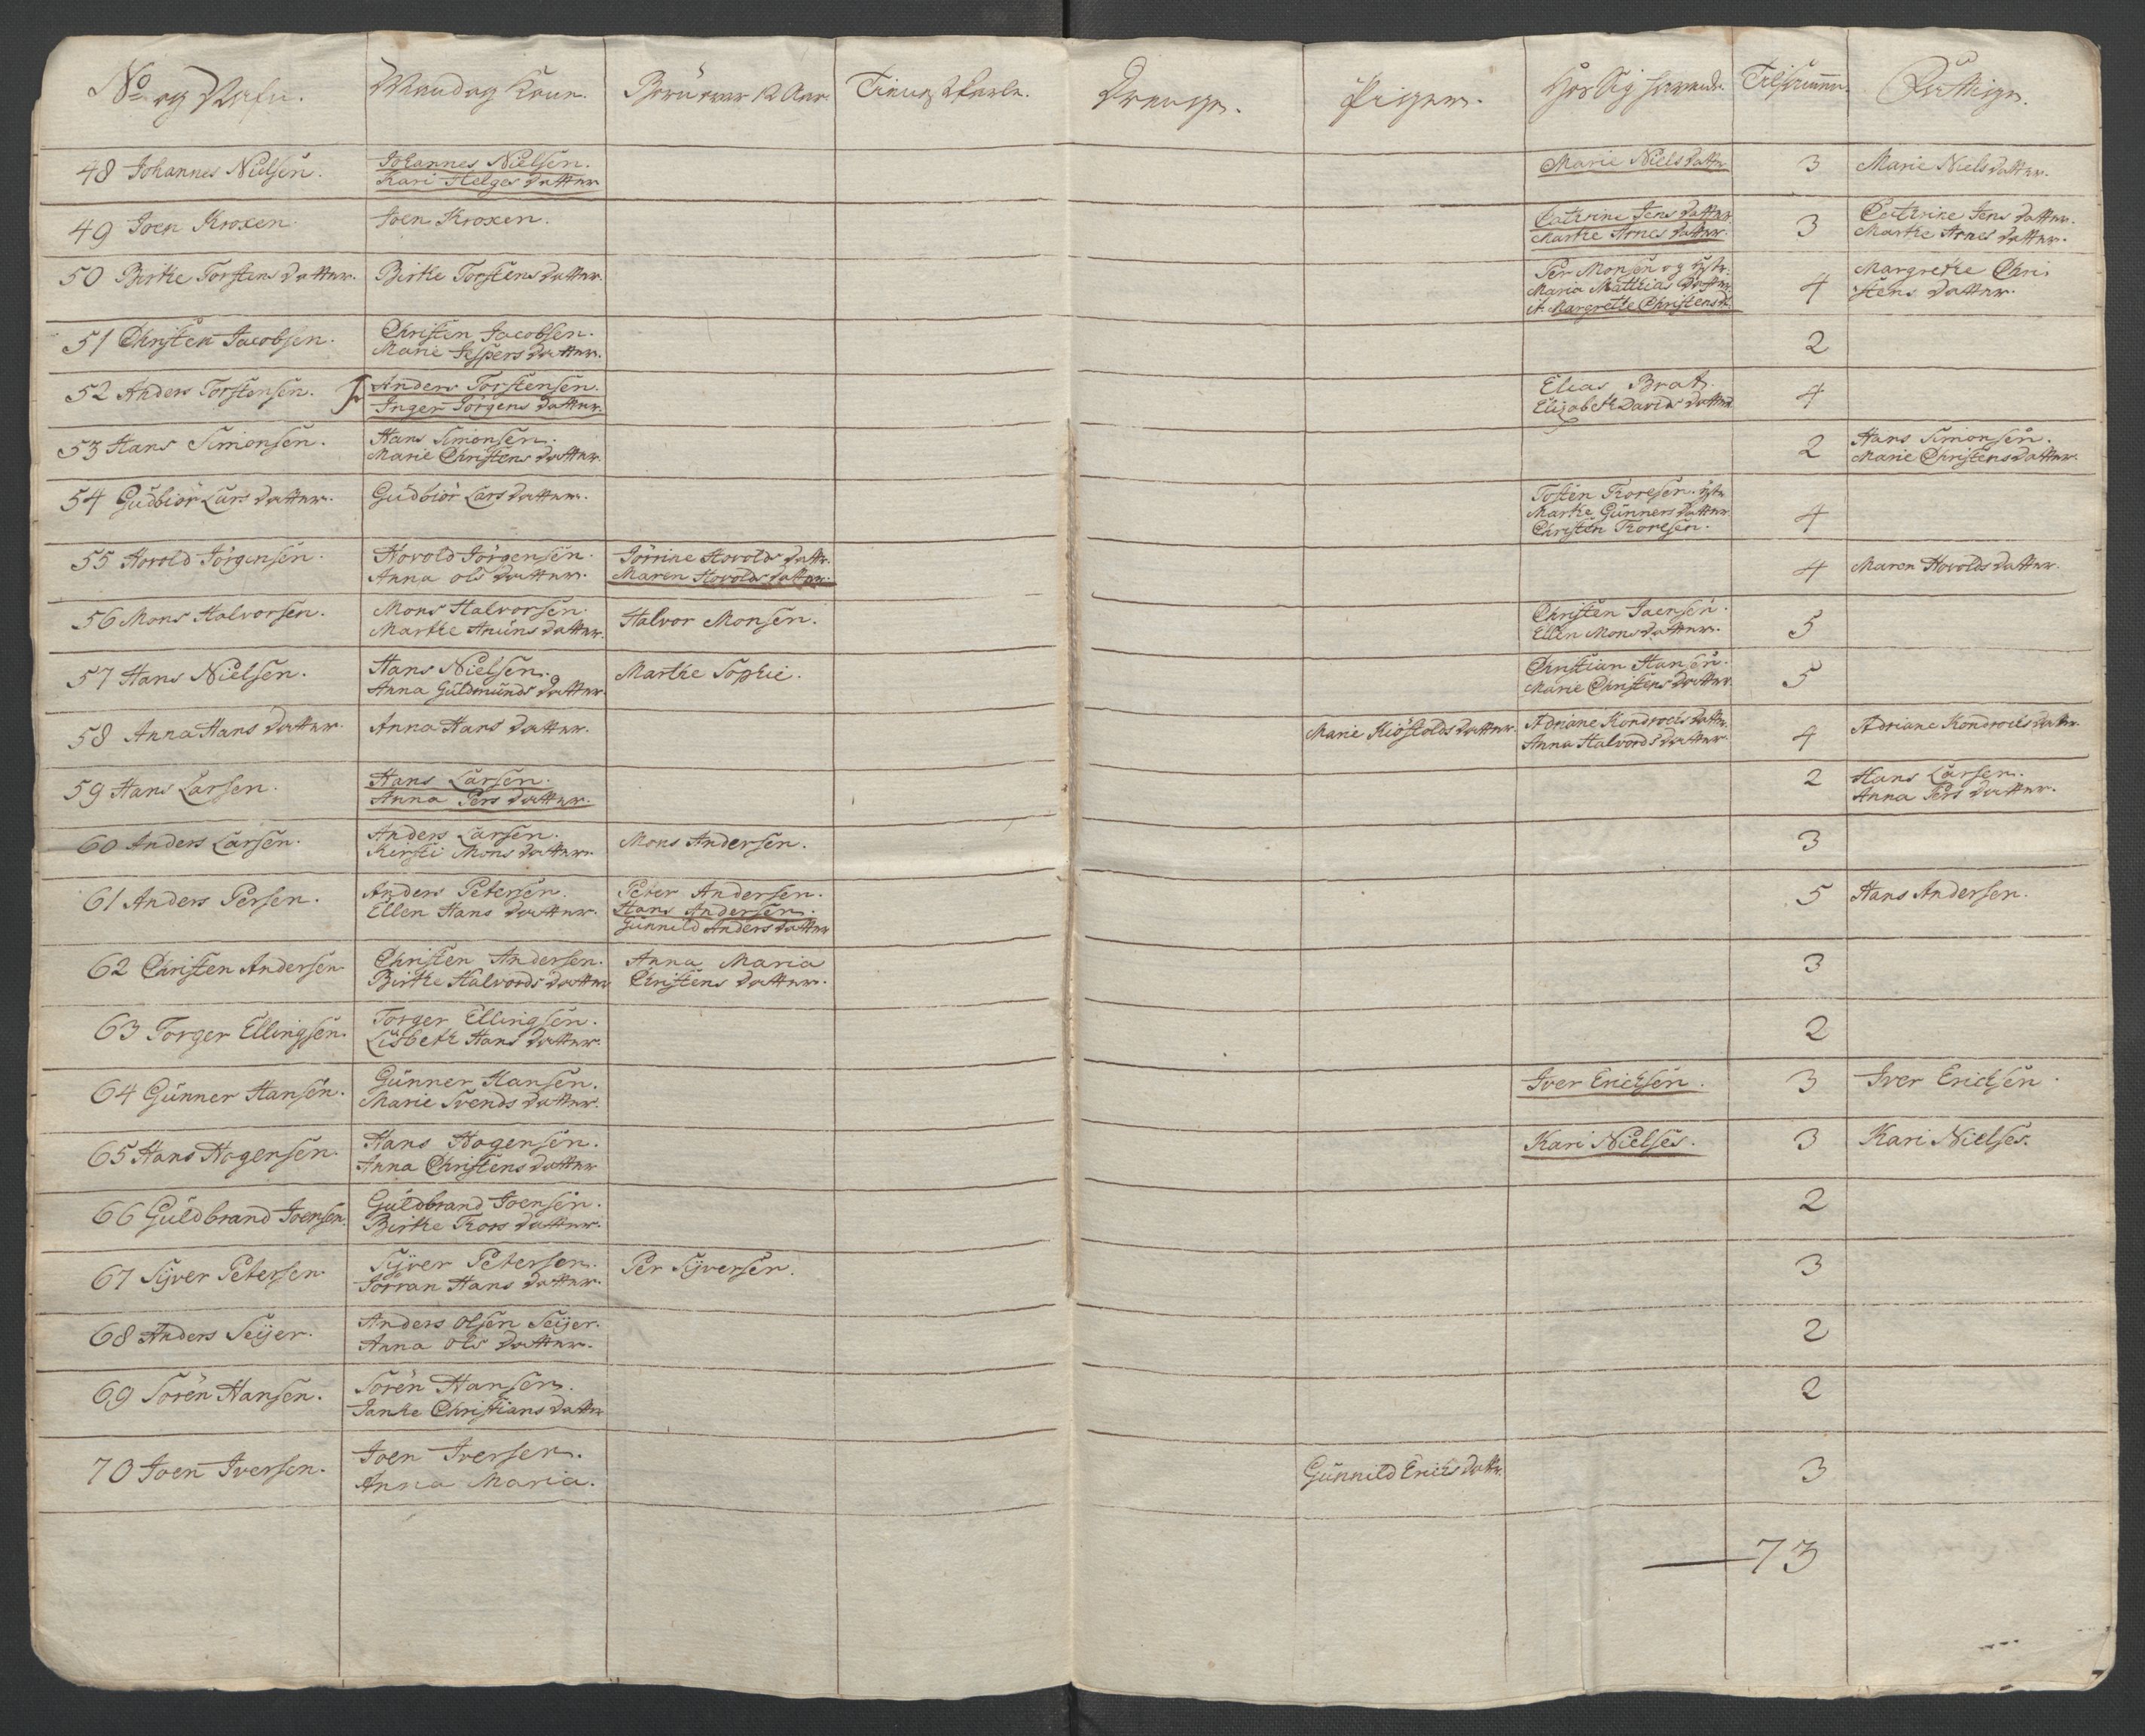 No og Nafn. Mand og Kone. Börn over 12 Aar. Tieneste Karle. Drenge. Piger. Hos Sig havende. Tilsammen. Fattige.
48 Johannes Nielsen. Johannes Nielsen. Marie Nielsdatter 3 Marie Nielsdatter.
Kari Helges datter
49 Joen Kroxen. Joen Kroxen. Cathrine Jens datter 3 Cathrine Jens datter.
Marthe Arnes datter. Marthe Arnes datter.
50 Birthe Torstens datter. Birthe Torstens datter. Per Monsen og hstr. 4 Margrethe Chri
Maria Matthias datter stens datter.
it. Margrethe Christensd
51 Christen Jacobsen. Christen Jacobsen. 2
Marie Jespers datter.
52 Anders Torstensen. Anders Torstensen. Elias Brat. 4
Inger Jörgens datter. Elizabeth Davids datter
53 Hans Simonsen. Hans Simonsen. 2 Hans Simonsen.
Marie Christens datter. Marie Christensdatter.
54 Gudbiör Lars datter. Gudbiör Lars datter. Tosten Thoresen. hstr 4
Marthe Gunners datter
Christen Thoresen.
55 Hovold Jörgensen. Hovold Jörgensen. Jörrine Hovolds dattr. 4 Maren Hovolds datter.
Anna Ols datter. Maren Hovolds datter.
56 Mons Halvorsen. Mons Halvorsen. Halvor Monsen. Christen Jaensen. 5
Marthe Anuns datter. Ellen Mons datter.
57 Hans Nielsen. Hans Nielsen. Marthe Sophie. Christian Hansen. 5
Anna Guldmunds datter. Marie Christens datter.
58 Anna Hans datter. Anna Hans datter. Marie Kiöstolds datter. Adriane Kondrods datter. 4 Adriane Kondrods datter.
Anna Halvords datter.
59 Hans Larsen. Hans Larsen. 2 Hans Larsen.
Anna Pers datter. Anna Pers datter.
60 Anders Larsen. Anders Larsen. Mons Andersen. 3
Kirsti Mons datter.
61 Anders Persen. Anders Petersen. Peter Andersen. 5 Hans Andersen.
Ellen Hans datter. Hans Andersen.
Gunnild Anders datter
62 Christen Andersen. Christen Andersen. Anna Maria 3
Birthe Halvords datter Christens datter.
63 Torger Ellingsen. Torger Ellingsen. 2
Lisbeth Hans datter.
64 Gunner Hansen. Gunner Hansen. Iver Erichsen. 3 Iver Erichsen.
Marie Svends datter.
65 Hans Hogensen. Hans Hogensen. Kari Nielses. 3 Kari Nielses.
Anna Christens datter
66 Guldbrand Joensen. Guldbrand Joensen. 2
Birthe Thors datter.
67 Sÿver Petersen. Sÿver Petersen. Per Sÿversen. 3
Jorran Hans datter.
68 Anders Seÿer. Anders Olsen Seÿer. 2
Anna Ols datter.
69 Sören Hansen. Sören Hansen. 2
Janthe Christians datter
70 Joen Iversen. Joen Iversen. Gunnild Erichs datter. 3
Anna Maria.
73